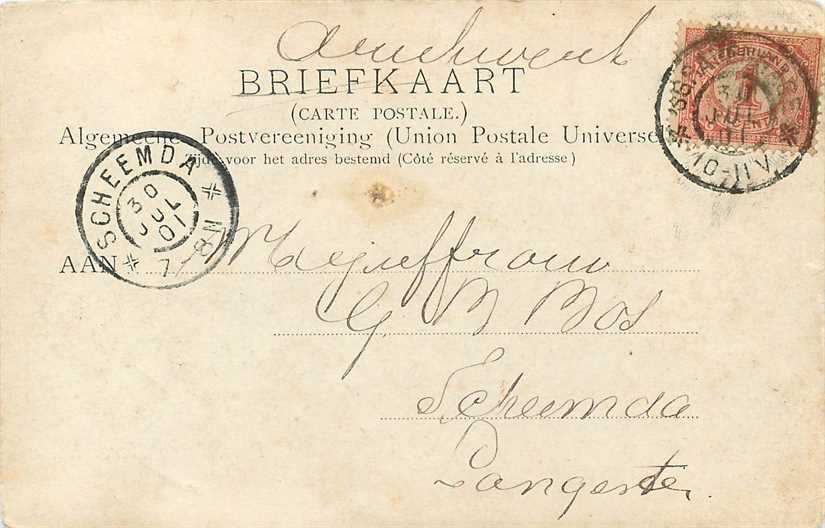 BRIEFKAART
(CARTE POSTALE.)
Algemeene Postvereeniging (Union Postale Universelle)
Zijde voor het adres bestemd (Côté réservé à l'adresse)
SCHEEMDA
30
JUL
01
7-8N
1
30
JUL
01
10-11V
AAN Mejuffrouw
G B Bos
Scheemda